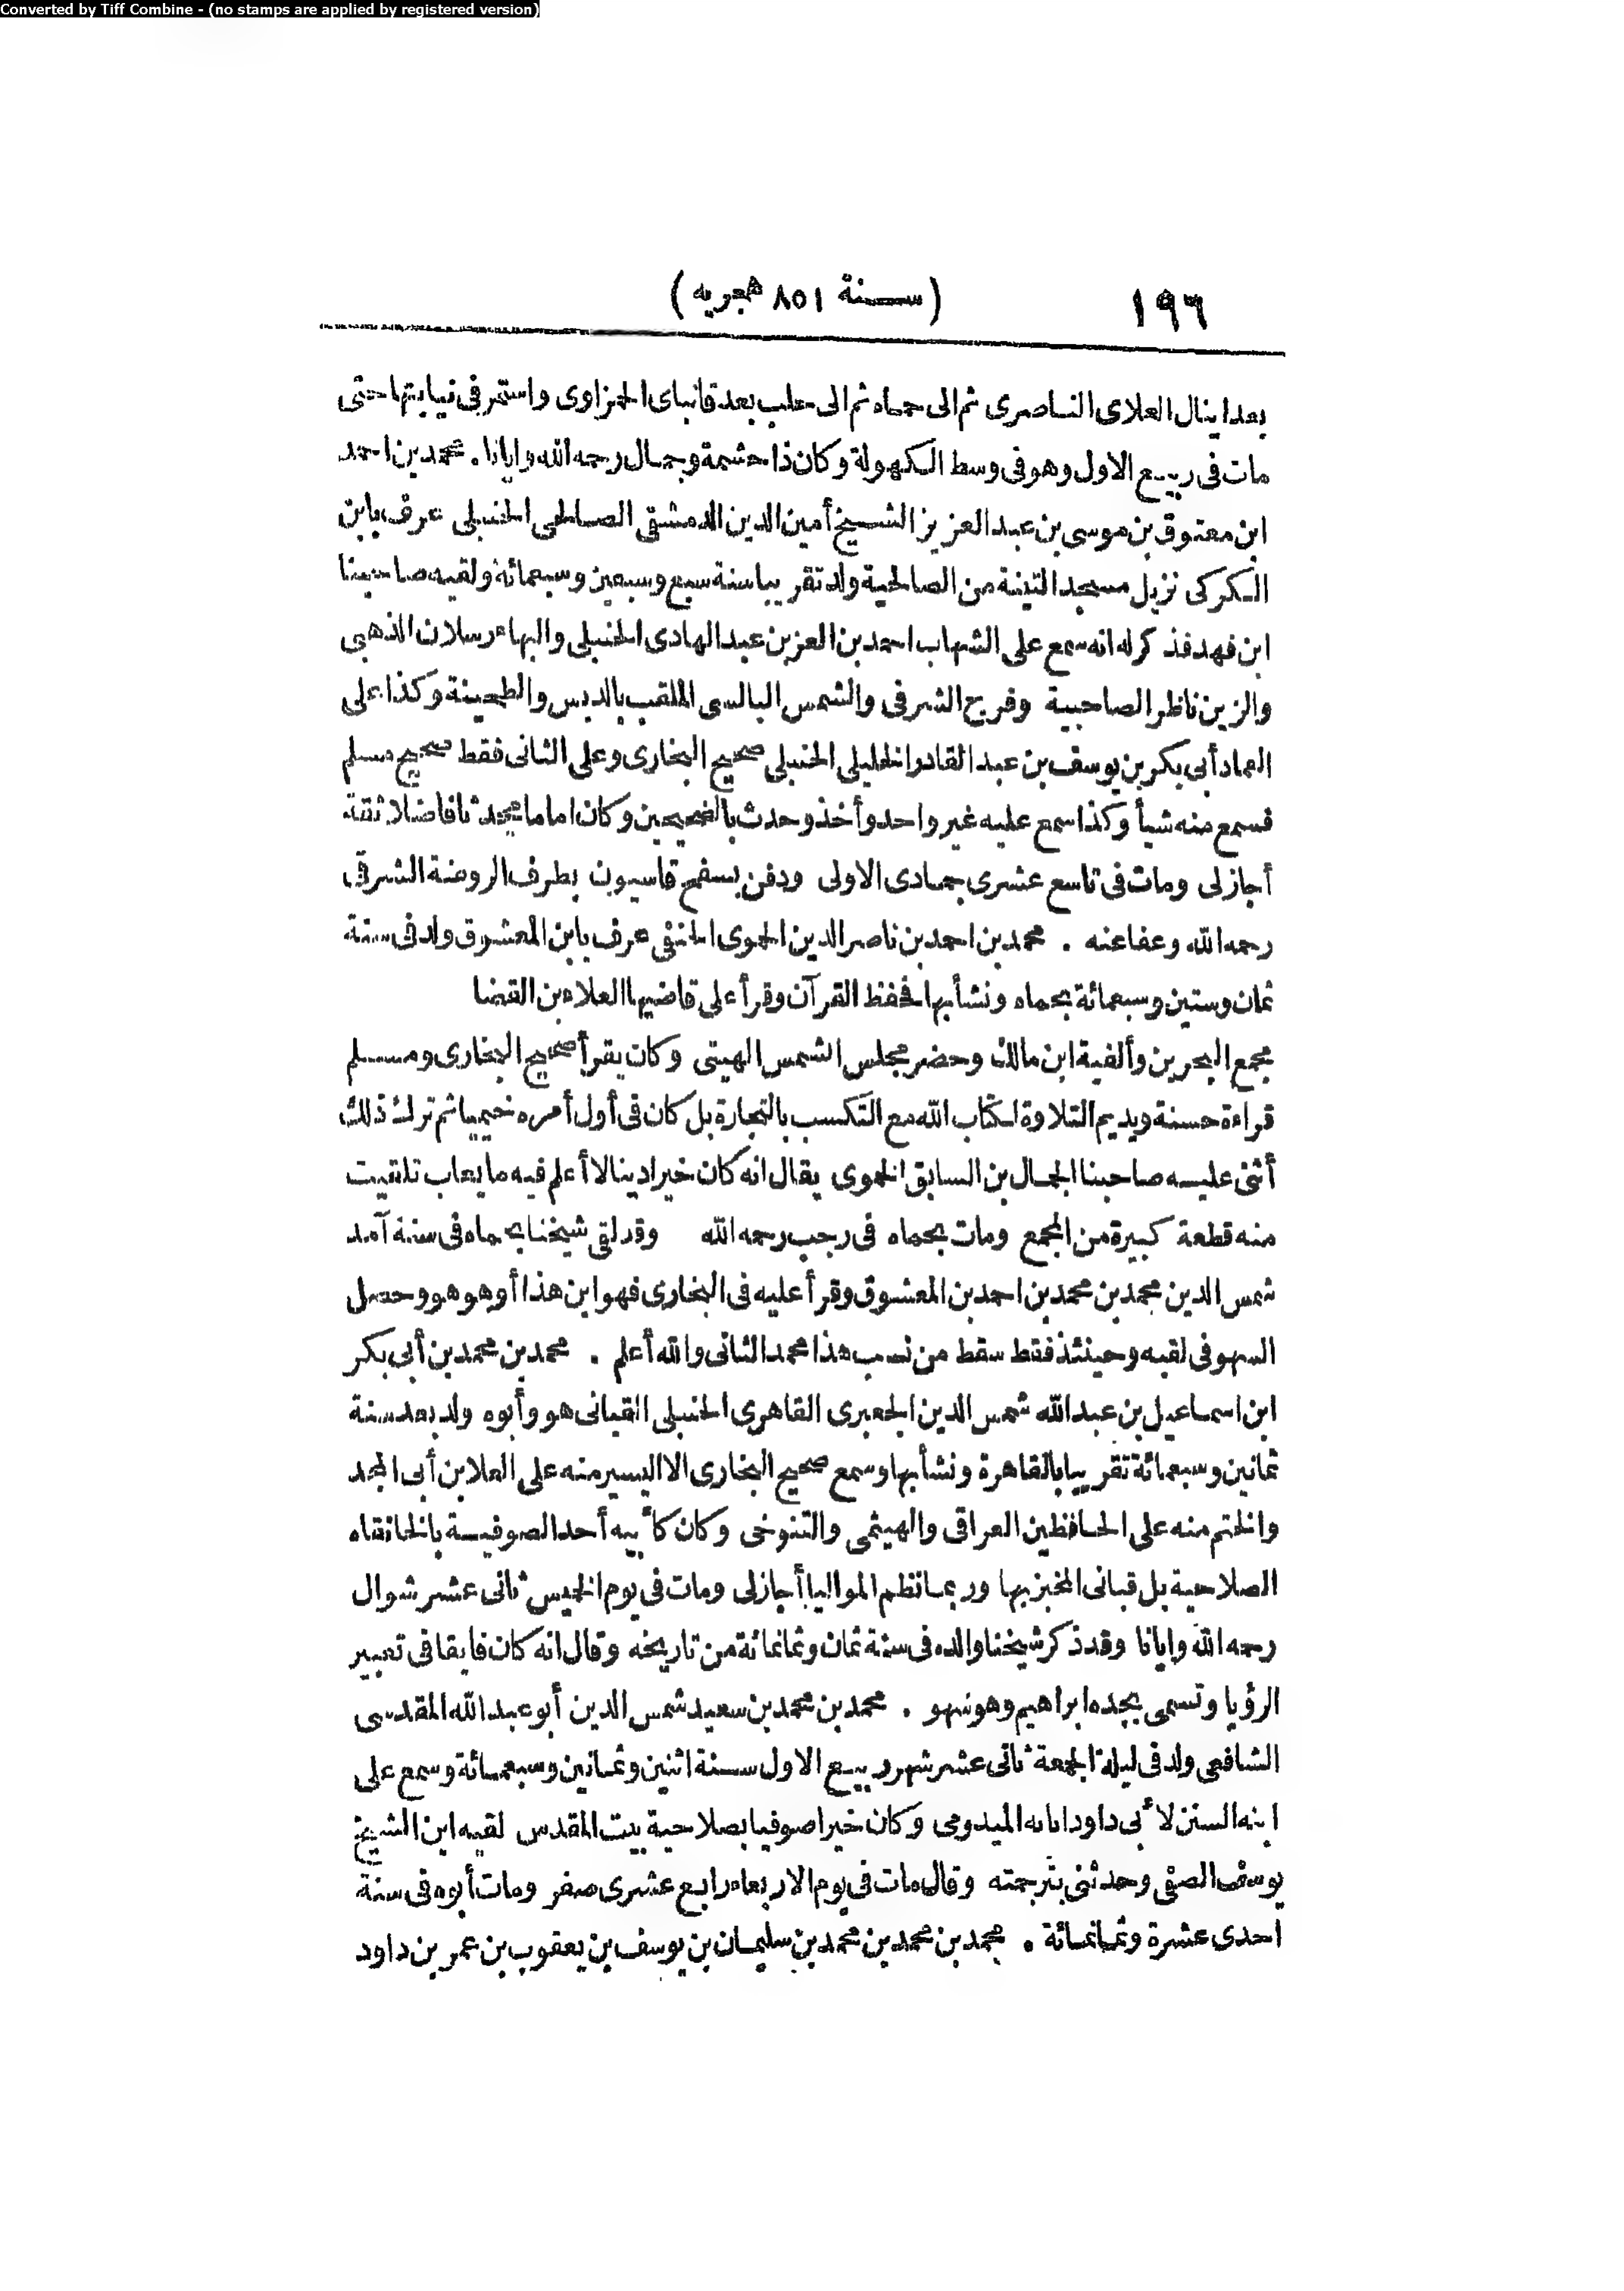 Converted by Tiff Combine - (no stamps are applied by registered version)
١٩٦ (سنة ٨٥١ هجريه)
بعد اينال العلاى الناصرى ثم الى حماه ثم الى حلب بعد قانباى الحمزاوى واستمر فى نيابتها حتى
مات فى ربيع الاول وهو فى وسط الكهولة وكان ذا حشمة وجمال رحمه الله وايانا . محمد بن احمد
ابن معتوق بن موسى بن عبد العزيز الشيخ أمين الدين الدمشقى الصالحى الحنبلى عرف بابن
الكركى نزيل مسجد التينة من الصالحية ولد تقريبا سنة سبع وسبعين وسبعمائة ولقيه صاحبنا
ابن فهد فذكر له انه سمع على الشهاب احمد بن العز بن عبد الهادى الحنبلى والبهاء رسلان الذهبى
والزين ناظر الصاحبية وفرج الشرفى والشمس البالسى الملقب بالدبس والطحينة وكذا على
العماد أبى بكر بن يوسف بن عبد القادر الخليلى الحنبلى صحيح البخارى وعلى الثانى فقط صحيح مسلم
فسمع منه شيأ وكذا سمع عليه غير واحد وأخذ وحدث بالصحيحين وكان اماما محدثا فاضلا ثقة
أجاز لى ومات فى تاسع عشرى جمادى الاولى ودفن بسفح قاسيون بطرف الروضة الشرقى
رحمه الله وعفا عنه . محمد بن احمد بن ناصر الدين الحموى الحنفى عرف بابن المعشوق ولد فى سنة
ثمان وستين وسبعمائة بحماه ونشأ بها فحفظ القرآن وقرأ على قاضيها العلاء بن القضا
مجمع البحرين وألفية ابن مالك وحضر مجلس الشمس الهيتى وكان يقرأ صحيح البخارى ومسلم
قراءة حسنة ويديم التلاوة لكتاب الله مع التكسب بالتجارة بل كان فى أول أمره خيميا ثم ترك ذلك
أثنى عليه صاحبنا الجمال بن السابق الحموى يقال انه كان خيرا دينا لا أعلم فيه ما يعاب تلقيت
منه قطعة كبيرة من المجمع ومات بحماه فى رجب رحمه الله وقد لقى شيخنا بحماه فى سنة آمد
شمس الدين محمد بن محمد بن احمد بن المعشوق وقرأ عليه فى البخارى فهو ابن هذا أو هو هو وحصل
السهو فى لقبه وحينئذ فقط سقط من نسب هذا محمد الثانى والله أعلم . محمد بن محمد بن أبى بكر
ابن اسماعيل بن عبد الله شمس الدين الجعبرى القاهرى الحنبلى القبانى هو وأبوه ولد بعد سنة
ثمانين وسبعمائة تقريبا بالقاهرة ونشأ بها وسمع صحيح البخارى الا اليسير منه على العلا بن أبى المجد
والختم منه على الحافظين العراقى والهيثمى والتنوخى وكان كأبيه أحد الصوفية بالخانقاه
الصلاحية بل قبانى الخبز بها وربما نظم المواليا أجاز لى ومات فى يوم الخميس ثانى عشر شوال
رحمه الله وايانا وقد ذكر شيخنا والده فى سنة ثمان وثمانمائة من تاريخه وقال انه كان فايقا فى تعبير
الرؤيا وتسمى بجده ابراهيم وهو سهو . محمد بن محمد بن سعيد شمس الدين أبو عبد الله المقدسى
الشافعى ولد فى ليلة الجمعة ثانى عشر شهر ربيع الاول سنة اثنين وثمانين وسبعمائة وسمع على
ابنه السنن لأبى داود انابه الميدومى وكان خيرا صوفيا بصلاحية بيت المقدس لقيه ابن الشيخ
يوسف الصفى وحدثنى بترجمته وقال مات فى يوم الاربعاء رابع عشرى صفر ومات أبوه فى سنة
احدى عشرة وثمانمائة . محمد بن محمد بن محمد بن سليمان بن يوسف بن يعقوب بن عمر بن داود